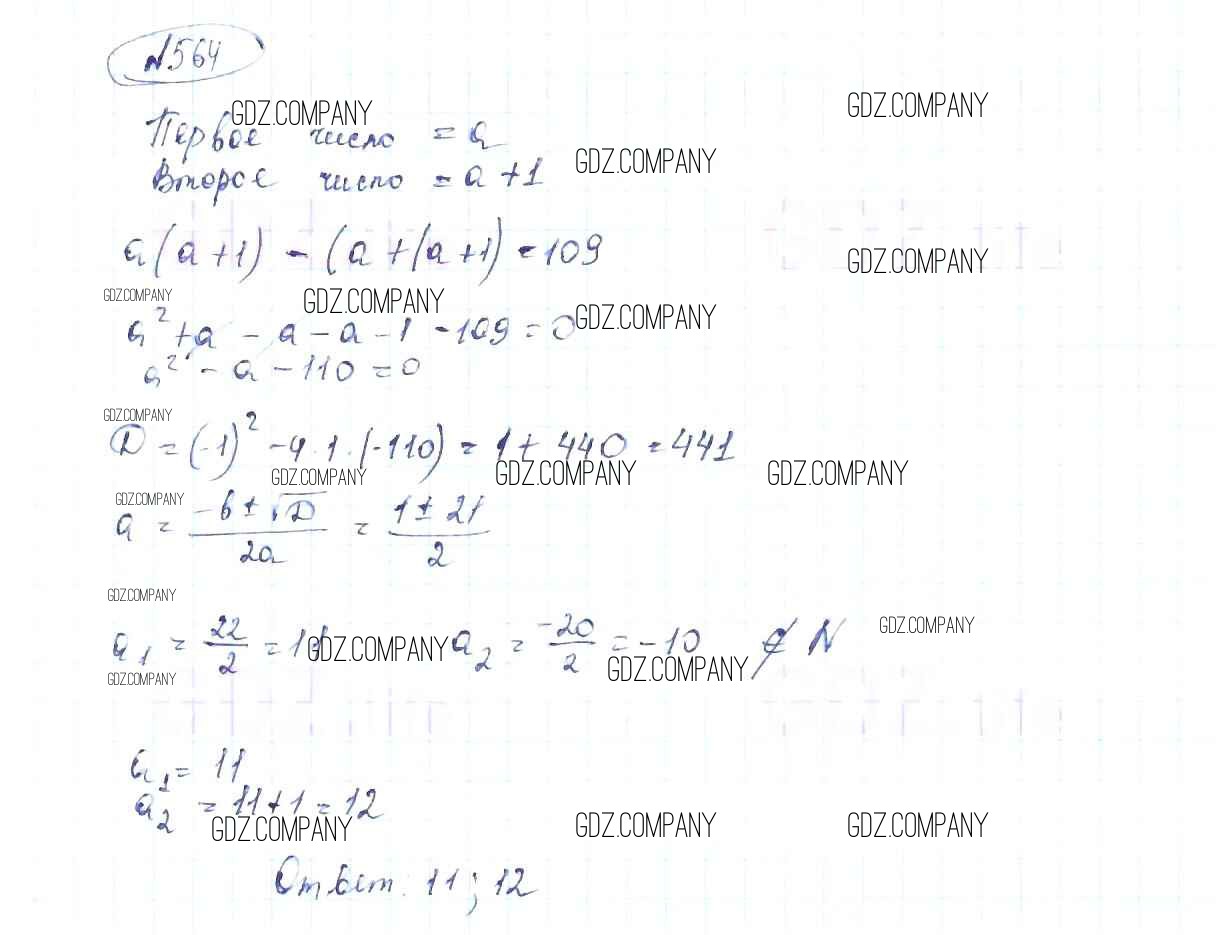 №564
GDZ.COMPANY
GDZ.COMPANY
Первое число = a
GDZ.COMPANY
Второе число = a+1
a(a+1) - (a+(a+1) = 109
GDZ.COMPANY
GDZ.COMPANY
GDZ.COMPANY
GDZ.COMPANY
a² + a - a - a - 1 - 109 = 0
a² - a - 110 = 0
GDZ.COMPANY
D = (-1)² - 4·1·(-110) = 1 + 440 = 441
GDZ.COMPANY
GDZ.COMPANY
GDZ.COMPANY
GDZ.COMPANY
a = (-b ± √D)/2a = (1 ± 21)/2
GDZ.COMPANY
GDZ.COMPANY
a₁ = 22/2 = 11 a₂ = -20/2 = -10 ∉ N
GDZ.COMPANY
GDZ.COMPANY
GDZ.COMPANY
a₁ = 11
a₂ = 11+1 = 12
GDZ.COMPANY
GDZ.COMPANY
GDZ.COMPANY
Ответ: 11; 12